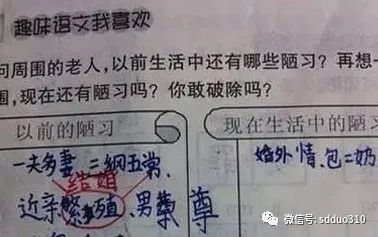 趣味语文我喜欢
问周围的老人,以前生活中还有哪些陋习?再想一
围,现在还有陋习吗?你敢破除吗?
以前的陋习
一夫多妻、三纲五常、
结婚
近亲繁殖、男尊
现在生活中的陋习
婚外情、包二奶
微信号: sdduo310